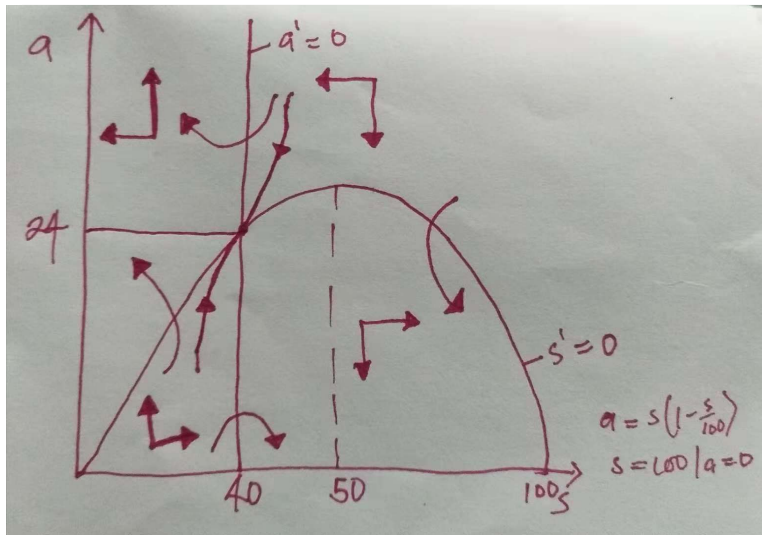 a
a' = 0
24
s' = 0
a = s(1 - s/100)
s = 100 | a = 0
40
50
100
s